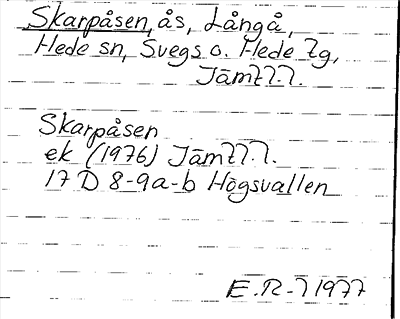 Skarpåsen, ås, Långå,
Hede sn, Svegs o. Hede tg,
Jämtl.
Skarpåsen
ek (1976) Jämtl.
17 D 8-9a-b Högsvallen
E.R-l 1977